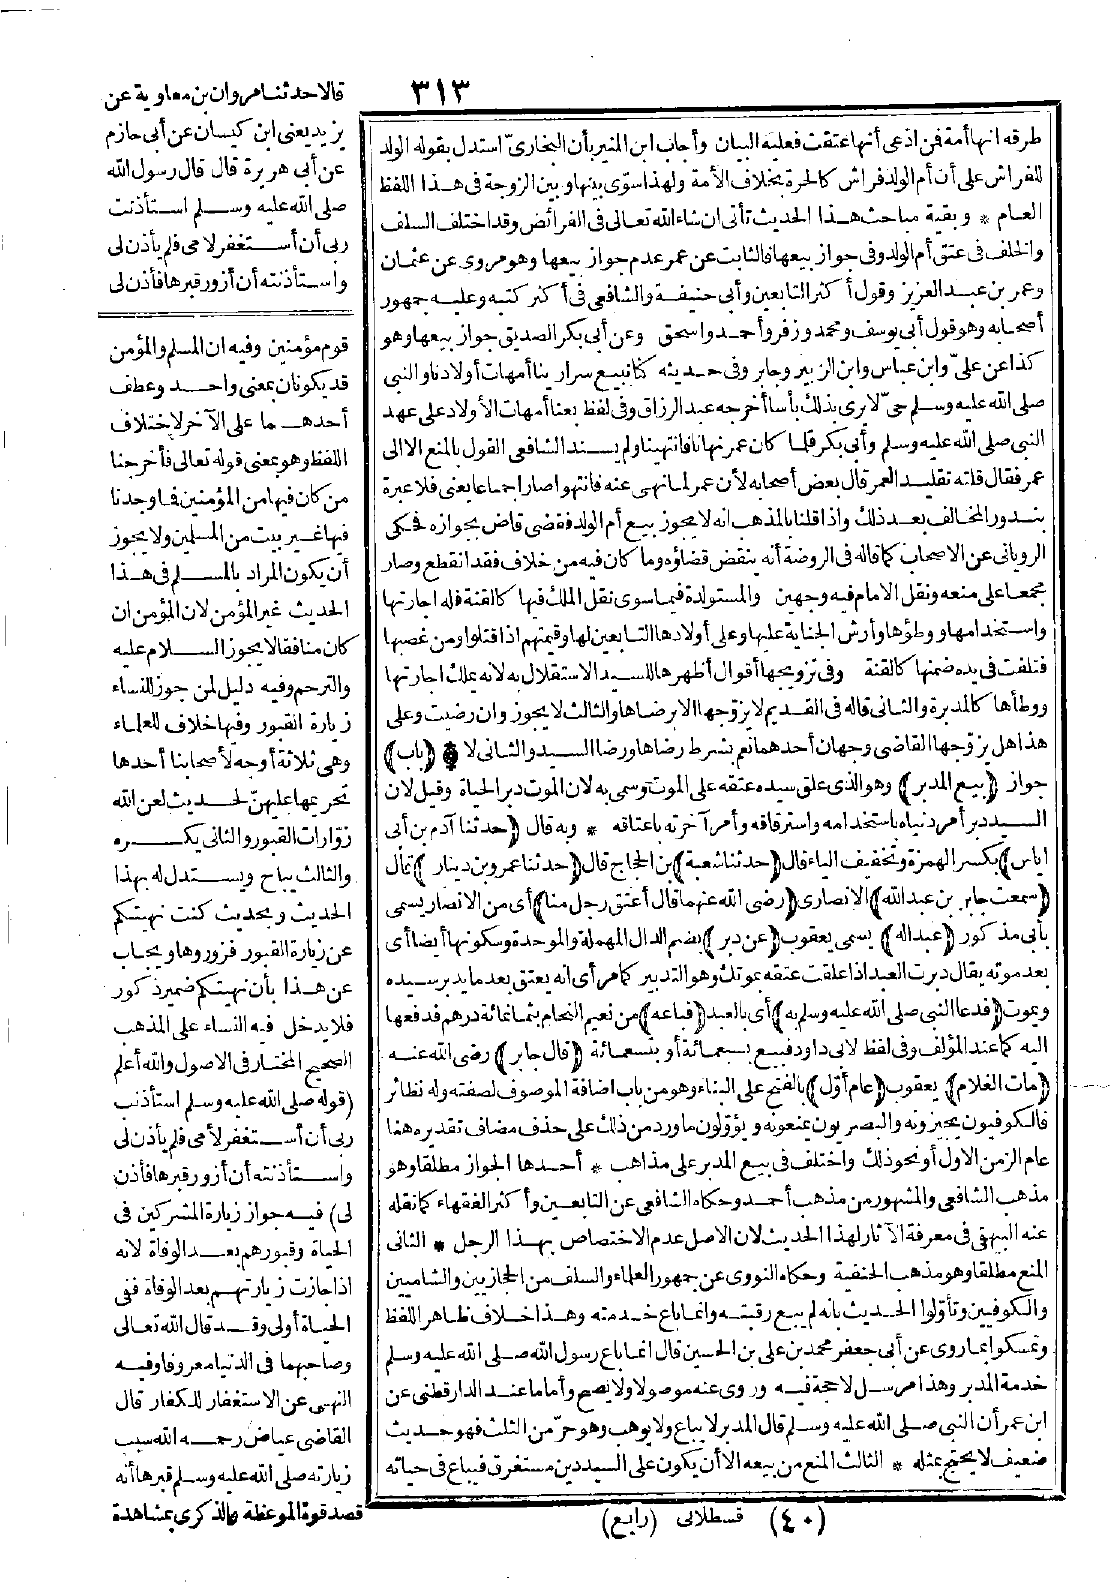 ٣١٣
طرقه انها أمة فن ادعى أنها عتقت فعليه البيان وأجاب ابن المنير بأن البخارىّ استدل بقوله الولد
للفراش على أن أم الولد فراش كالحرة بخلاف الأمة ولهذا سوّى بينها و بين الزوجة فى هذا اللفظ
العام * وبقية مباحث هذا الحديث تأتى ان شاء الله تعالى فى الفرائض وقد اختلف السلف
والخلف فى عتق أم الولد وفى جواز بيعها فالثابت عن عمر عدم جواز بيعها وهو مروى عن عثمان
وعمر بن عبد العزيز وقول أكثر التابعين وأبى حنيفة والشافعى فى أكثر كتبه وعليه جمهور
أصحابه وهو قول أبى يوسف ومحمد وزفر وأحمد واسحق وعن أبى بكر الصديق جواز بيعها وهو
كذا عن علىّ وابن عباس وابن الزبير وجابر وفى حديثه كنا نبيع سرارينا أمهات أولادنا والنبى
صلى الله عليه وسلم حىّ لا يرى بذلك بأسا أخرجه عبد الرزاق وفى لفظ بعنا أمهات الأولاد على عهد
النبى صلى الله عليه وسلم وأبى بكر فلما كان عمر نهانا فانتهينا ولم يسند الشافعى القول بالمنع الا الى
عمر فقال قلته تقليد العمر قال بعض أصحابه لأن عمر لما نهى عنه فانتهوا صار اجماعا يعنى فلا عبرة
بندور المخالف بعد ذلك واذا قلنا بالمذهب انه لا يجوز بيع أم الولد فقضى قاض بجوازه فحكى
الرويانى عن الاصحاب كما قاله فى الروضة أنه ينقض قضاؤه وما كان فيه من خلاف فقد انقطع وصار
مجمعا على منعه ونقل الامام فيه وجهين والمستولدة فيما سوى نقل الملك فيها كالقنة فله اجارتها
واستخدامها ووطؤها وأرش الجناية عليها وعلى أولادها التابعين لها وقيمتهم اذا قتلوا ومن غصبها
فتلفت فى يده ضمنها كالقنة وفى تزويجها أقوال أظهرها للسيد الاستقلال به لانه يملك اجارتها
ووطأها كالمدبرة والثانى قاله فى القديم لا يزوّجها الا برضاها والثالث لا يجوز وان رضيت وعلى
هذا هل يزوّجها القاضى وجهان أحدهما نعم بشرط رضاها ورضا السيد والثانى لا ۞ ﴿باب﴾
جواز ﴿بيع المدبر﴾ وهو الذى علق سيده عتقه على الموت وسمى به لان الموت دبر الحياة وقيل لان
السيد دبر أمر دنياه باستخدامه واسترقاقه وأمر آخرته باعتاقه * وبه قال ﴿حدثنا آدم بن أبى
اياس﴾ بكسر الهمزة وتخفيف الياء قال ﴿حدثنا شعبة﴾ بن الحجاج قال ﴿حدثنا عمرو بن دينار﴾ قال
﴿سمعت جابر بن عبد الله﴾ الانصارى ﴿رضى الله عنهما قال أعتق رجل منا﴾ أى من الانصار يسمى
بأبى مذكور ﴿عبدا له﴾ يسمى يعقوب ﴿عن دبر﴾ بضم الدال المهملة والموحدة وسكونها أيضا أى
بعد موته يقال دبرت العبد اذا علقت عتقه بموتك وهو التدبير كما مر أى انه يعتق بعد ما يدبر سيده
ويموت ﴿فدعا النبى صلى الله عليه وسلم به﴾ أى بالعبد ﴿فباعه﴾ من نعيم النحام بثمانمائة درهم فدفعها
اليه كما عند المؤلف وفى لفظ لابى داود فبيع بسبعمائة أو بتسعمائة ﴿قال جابر﴾ رضى الله عنه
﴿مات الغلام﴾ يعقوب ﴿عام أوّل﴾ بالفتح على البناء وهو من باب اضافة الموصوف لصفته وله نظائر
فالكوفيون يجيزونه والبصريون يمنعونه ويؤوّلون ما ورد من ذلك على حذف مضاف تقديره هنا
عام الزمن الاول أو نحو ذلك واختلف فى بيع المدبر على مذاهب * أحدها الجواز مطلقا وهو
مذهب الشافعى والمشهور من مذهب أحمد وحكاه الشافعى عن التابعين وأكثر الفقهاء كما نقله
عنه البيهقى فى معرفة الآثار لهذا الحديث لان الاصل عدم الاختصاص بهذا الرجل * الثانى
المنع مطلقا وهو مذهب الحنفية وحكاه النووى عن جمهور العلماء والسلف من الحجازيين والشاميين
والكوفيين وتأوّلوا الحديث بانه لم يبع رقبته وانما باع خدمته وهذا خلاف ظاهر اللفظ
وتمسكوا بما روى عن أبى جعفر محمد بن على بن الحسين قال انما باع رسول الله صلى الله عليه وسلم
خدمة المدبر وهذا مرسل لا حجة فيه وروى عنه موصولا ولا يصح وأما ما عند الدارقطنى عن
ابن عمر أن النبى صلى الله عليه وسلم قال المدبر لا يباع ولا يوهب وهو حرّ من الثلث فهو حديث
ضعيف لا يحتج بمثله * الثالث المنع من بيعه الا أن يكون على السيد دين مستغرق فيباع فى حياته
(٤٠) قسطلانى (رابع)
قالا حدثنا مروان بن معاوية عن
يزيد يعنى ابن كيسان عن أبى حازم
عن أبى هريرة قال قال رسول الله
صلى الله عليه وسلم استأذنت
ربى أن أستغفر لامى فلم يأذن لى
واستأذنته أن أزور قبرها فأذن لى
قوم مؤمنين وفيه ان المسلم والمؤمن
قد يكونان بمعنى واحد وعطف
أحدهما على الآخر لاختلاف
اللفظ وهو بمعنى قوله تعالى فأخرجنا
من كان فيها من المؤمنين فما وجدنا
فيها غير بيت من المسلمين ولا يجوز
أن يكون المراد بالمسلم فى هذا
الحديث غير المؤمن لان المؤمن ان
كان منافقا لا يجوز السلام عليه
والترحم وفيه دليل لمن جوز للنساء
زيارة القبور وفيها خلاف للعلماء
وهى ثلاثة أوجه لأصحابنا أحدها
تحريمها عليهنّ لحديث لعن الله
زوّارات القبور والثانى يكره
والثالث يباح ويستدل له بهذا
الحديث وبحديث كنت نهيتكم
عن زيارة القبور فزوروها ويجاب
عن هذا بأن نهيتكم ضمير ذكور
فلا يدخل فيه النساء على المذهب
الصحيح المختار فى الاصول والله أعلم
(قوله صلى الله عليه وسلم استأذنت
ربى أن أستغفر لأمى فلم يأذن لى
واستأذنته أن أزور قبرها فأذن
لى) فيه جواز زيارة المشركين فى
الحياة وقبورهم بعد الوفاة لانه
اذا جازت زيارتهم بعد الوفاة ففى
الحياة أولى وقد قال الله تعالى
وصاحبهما فى الدنيا معروفا وفيه
النهى عن الاستغفار للكفار قال
القاضى عياض رحمه الله سبب
زيارته صلى الله عليه وسلم قبرها أنه
قصد قوة الموعظة والذكرى بمشاهدة